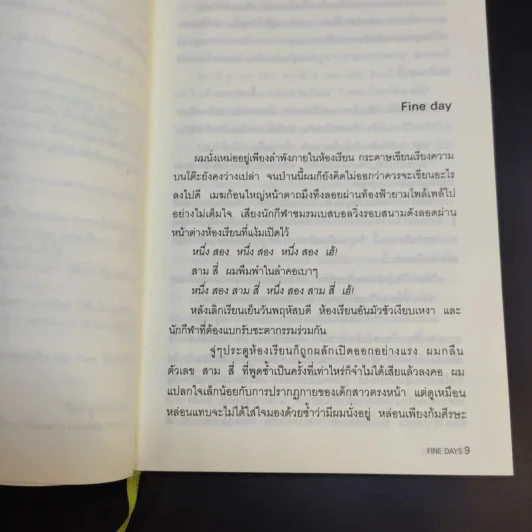 Fine day
ผมนั่งเหม่ออยู่เพียงลำพังภายในห้องเรียน กระดาษเขียนเรียงความ
บนโต๊ะยังคงว่างเปล่า จนป่านนี้ผมก็ยังคิดไม่ออกว่าควรจะเขียนอะไร
ลงไปดี เมฆก้อนใหญ่หน้าตาถมึงทึงลอยผ่านท้องฟ้ายามโพล้เพล้ไป
อย่างไม่เต็มใจ เสียงนักกีฬาชมรมเบสบอลวิ่งรอบสนามดังลอดผ่าน
หน้าต่างห้องเรียนที่แง้มเปิดไว้
หนึ่ง สอง หนึ่ง สอง หนึ่ง สอง เฮ้!
สาม สี่ ผมพึมพำในลำคอเบาๆ
หนึ่ง สอง สาม สี่ หนึ่ง สอง สาม สี่ เฮ้!
หลังเลิกเรียนเย็นวันพฤหัสบดี ห้องเรียนอันมัวซัวเงียบเหงา และ
นักกีฬาที่ต้องแบกรับชะตากรรมร่วมกัน
จู่ๆประตูห้องเรียนก็ถูกผลักเปิดออกอย่างแรง ผมกลืน
ตัวเลข สาม สี่ ที่พูดซ้ำเป็นครั้งที่เท่าไหร่ก็จำไม่ได้เสียแล้วลงคอ ผม
แปลกใจเล็กน้อยกับการปรากฏกายของเด็กสาวตรงหน้า แต่ดูเหมือน
หล่อนแทบจะไม่ได้ใส่ใจมองด้วยซ้ำว่ามีผมนั่งอยู่ หล่อนเพียงก้มศีรษะ
FINE DAYS 9